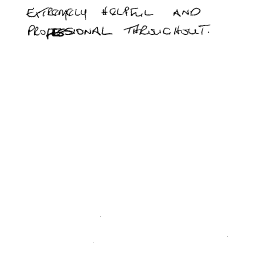 EXTREMELY HELPFUL AND
PROFESSIONAL THROUGHOUT.